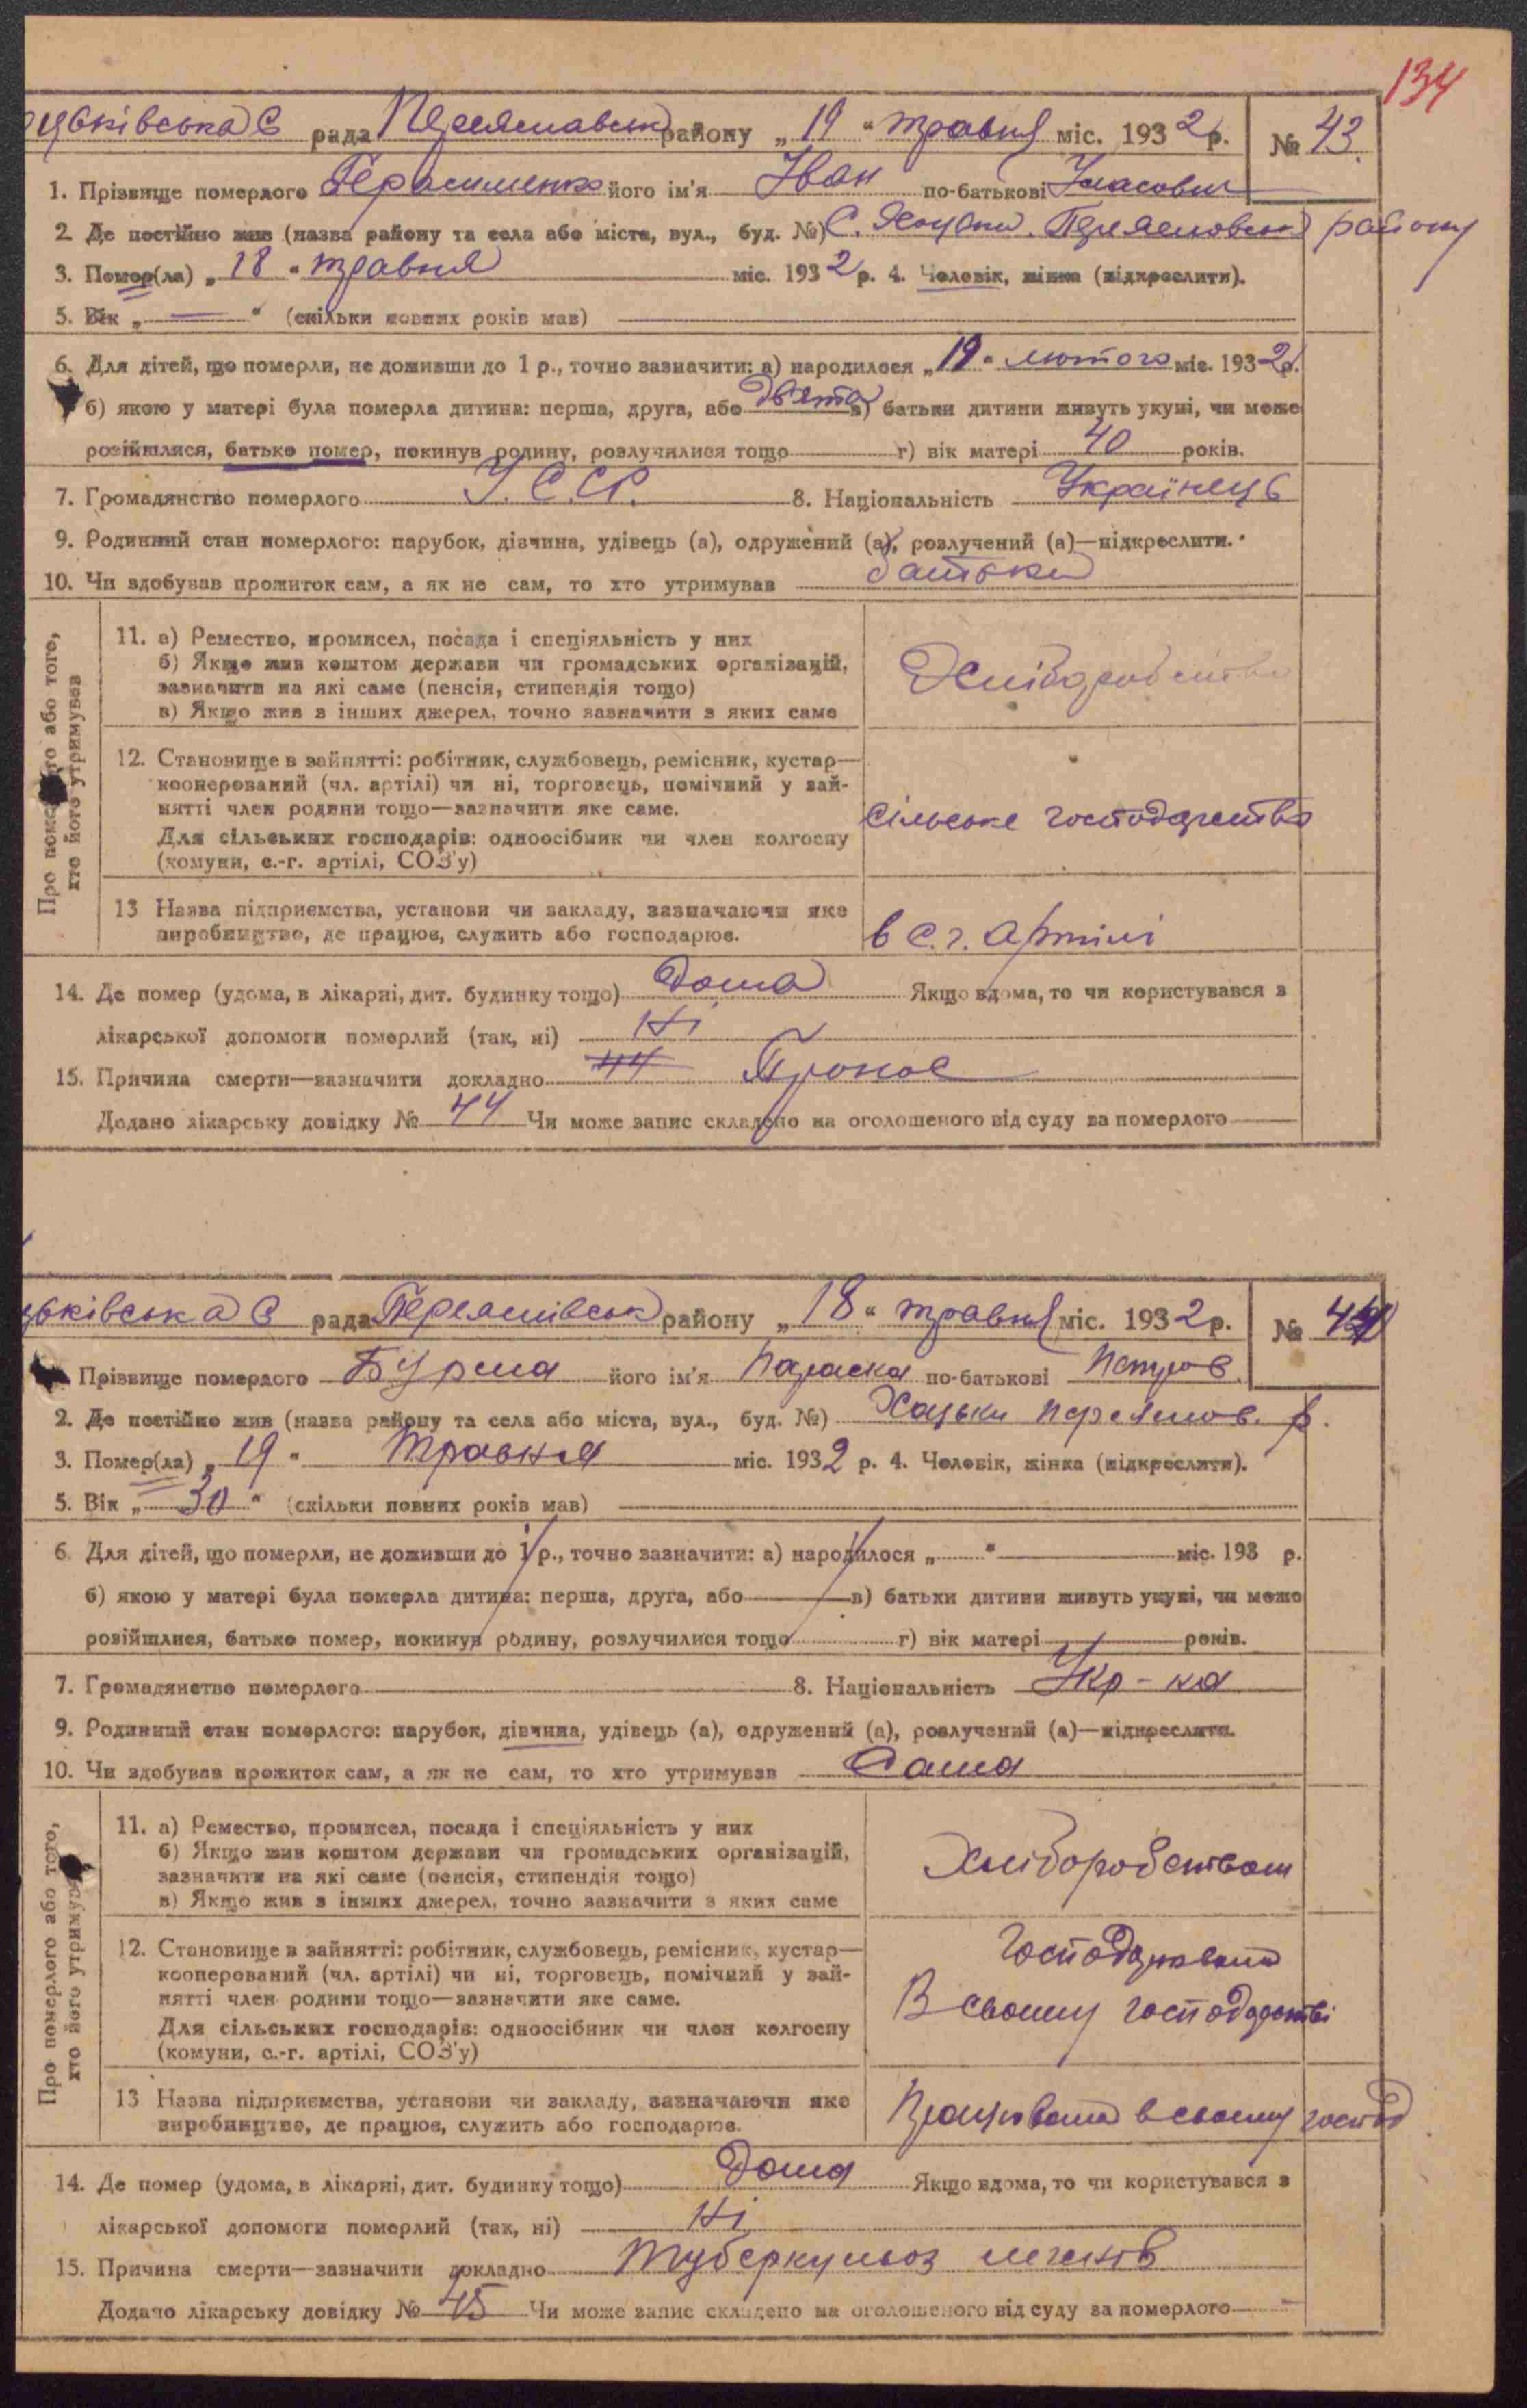 134
цьківська С рада Переяславськ району „ 19 “ травня міс. 1932 р. № 43.
1. Прізвище померлого Герасименко його ім'я Іван по-батькові Уласович
2. Де постійно жив (назва району та села або міста, вул., буд. №) С. Хоцьки. Переяславськ району
3. Помер(ла) „ 18 “ травня міс. 1932 р. 4. Чоловік, жінка (підкреслити).
5. Вік „ — “ (скільки повних років мав)
6. Для дітей, що померли, не доживши до 1 р., точно зазначити: а) народилося „ 19 “ лютого міс. 1932 р.
б) якою у матері була померла дитина: перша, друга, або дев'ята в) батьки дитини живуть укупі, чи може
розійшлися, батько помер, покинув родину, розлучилися тощо г) вік матері 40 років.
7. Громадянство померлого У.С.С.Р. 8. Національність Українець
9. Родинний стан померлого: парубок, дівчина, удівець (а), одружений (а), розлучений (а)—підкреслити.
10. Чи здобував прожиток сам, а як не сам, то хто утримував батьки
Про померлого або того, хто його утримував
11. а) Ремество, промисел, посада і спеціяльність у них
б) Якщо жив коштом держави чи громадських організацій,
зазначити на які саме (пенсія, стипендія тощо)
в) Якщо жив з інших джерел, точно зазначити з яких саме
Хліборобство
12. Становище в зайнятті: робітник, службовець, ремісник, кустар—
кооперований (чл. артілі) чи ні, торговець, помічний у зай-
нятті член родини тощо—зазначити яке саме.
Для сільських господарів: одноосібник чи член колгоспу
(комуни, с.-г. артілі, СОЗ'у)
сільське господарство
13 Назва підприємства, установи чи закладу, зазначаючи яке
виробництво, де працює, служить або господарює.
в с.г. артілі
14. Де помер (удома, в лікарні, дит. будинку тощо) дома Якщо вдома, то чи користувався з
лікарської допомоги померлий (так, ні) Ні
15. Причина смерти—зазначити докладно 44
Додано лікарську довідку № 44 Чи може запис складено на оголошеного від суду за померлого
ьківська С рада Переяслівськ району „ 18 “ травня міс. 1932 р. № 44
Прізвище померлого Бурма його ім'я Параска по-батькові Петров.
2. Де постійно жив (назва району та села або міста, вул., буд. №) Хоцьки Переяслов. р.
3. Помер(ла) „ 19 “ травня міс. 1932 р. 4. Чоловік, жінка (підкреслити).
5. Вік „ 30 “ (скільки повних років мав)
6. Для дітей, що померли, не доживши до 1 р., точно зазначити: а) народилося „ “ міс. 193 р.
б) якою у матері була померла дитина: перша, друга, або в) батьки дитини живуть укупі, чи може
розійшлися, батько помер, покинув родину, розлучилися тощо г) вік матері років.
7. Громадянство померлого 8. Національність Укр-ка
9. Родинний стан померлого: парубок, дівчина, удівець (а), одружений (а), розлучений (а)—підкреслити.
10. Чи здобував прожиток сам, а як не сам, то хто утримував Сама
Про померлого або того, хто його утримув
11. а) Ремество, промисел, посада і спеціяльність у них
б) Якщо жив коштом держави чи громадських організацій,
зазначити на які саме (пенсія, стипендія тощо)
в) Якщо жив з інших джерел, точно зазначити з яких саме
Хліборобством
12. Становище в зайнятті: робітник, службовець, ремісник, кустар—
кооперований (чл. артілі) чи ні, торговець, помічний у зай-
нятті член родини тощо—зазначити яке саме.
Для сільських господарів: одноосібник чи член колгоспу
(комуни, с.-г. артілі, СОЗ'у)
господарювала
В своему господарстві
13 Назва підприємства, установи чи закладу, зазначаючи яке
виробництво, де працює, служить або господарює.
Працювала в своему господ
14. Де помер (удома, в лікарні, дит. будинку тощо) Дома Якщо вдома, то чи користувався з
лікарської допомоги померлий (так, ні) Ні
15. Причина смерти—зазначити докладно туберкульоз легенів
Додано лікарську довідку № 45 Чи може запис складено на оголошеного від суду за померлого